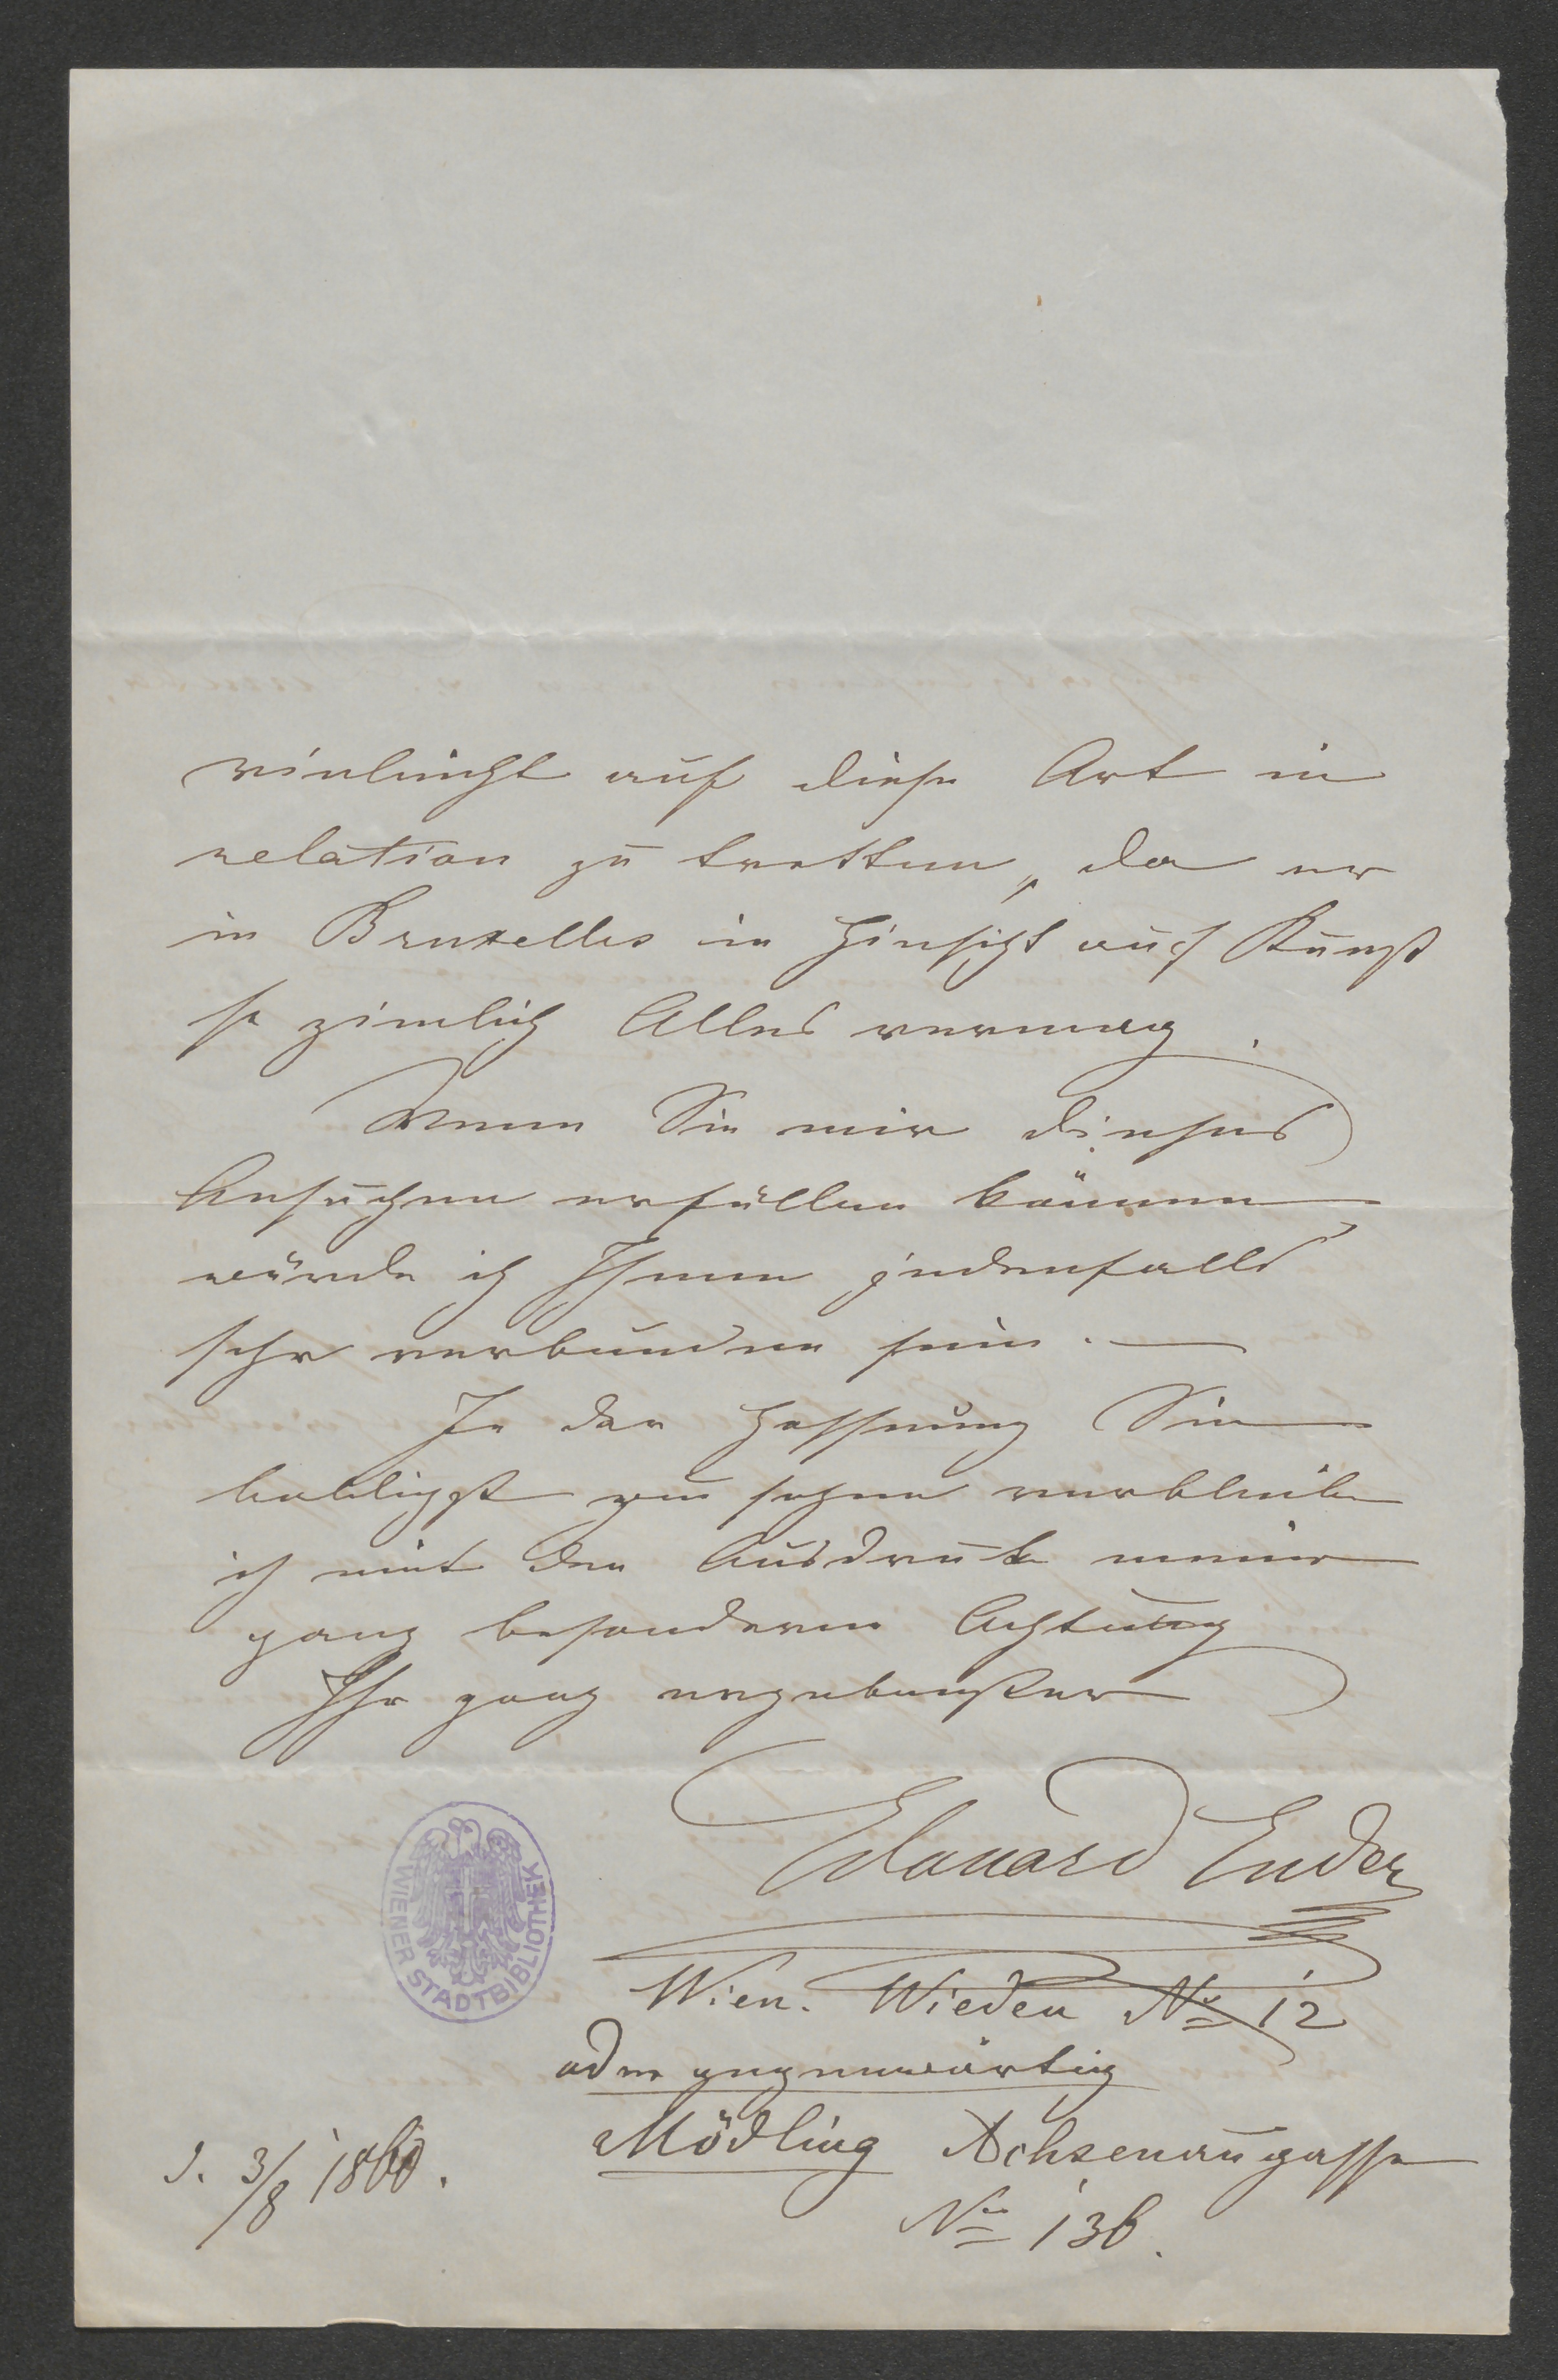 vieleicht auf diese Art in
relation zu tretten, da er
in Bruxelles in Hinsicht auf Kunst
so zimlich Alles vermag.
Wenn Sie mir dieses
Ansuchen erfüllen können
würde ich Ihnen jedenfalls
sehr verbunden sein. —
In der Hoffnung Sie
baldigst zu sehen verbleibe
ich mit den Ausdruke meiner
ganz besonderen Achtung
Ihr ganz ergebenster
Edouard Ender
Wien. Wieden No 12
oder gegenwärtig
Mödling Achsenaugasse
No 136.
d. 3/8 1860.
WIENER STADTBIBLIOTHEK